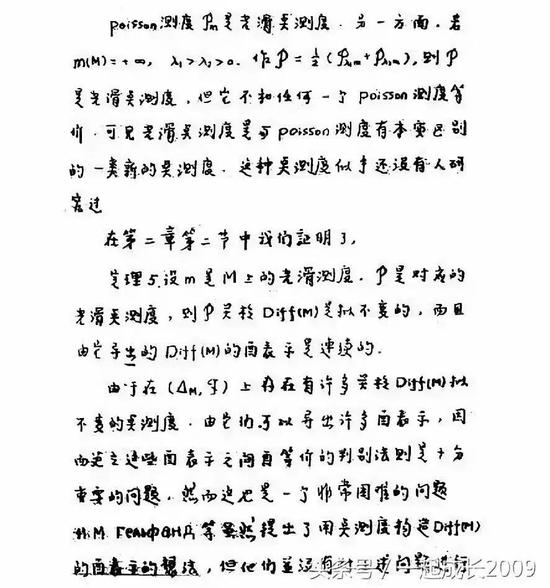 poisson测度 Pm是光滑吴测度. 另一方面. 若
m(M)=+∞, λ₁>λ₂>0. 作P=½(Pλ₁m+Pλ₂m), 则P
是光滑吴测度, 但它不和任何一个poisson测度等
价. 可见光滑吴测度是与poisson测度有本质区别
的一类新的吴测度. 这种吴测度似乎还没有人研
究过
在第二章第二节中我们証明了,
定理5 设m是M上的光滑测度. P是对应的
光滑吴测度, 则P关于Diff(M)是拟不变的, 而且
由它导出的Diff(M)的酉表示是连续的.
由于在(ΔM, 𝓕)上存在有许多关于Diff(M)拟
不变的吴测度. 由它们可以导出许多酉表示, 因
而建立这些酉表示之间酉等价的判别法则是十分
重要的问题. 然而这也是一个非常困难的问题
И.М. ГЕЛЬФАНД等虽然提出了用吴测度构造Diff(M)
的酉表示的想法, 但他们並没有
头条号/一起成长2009